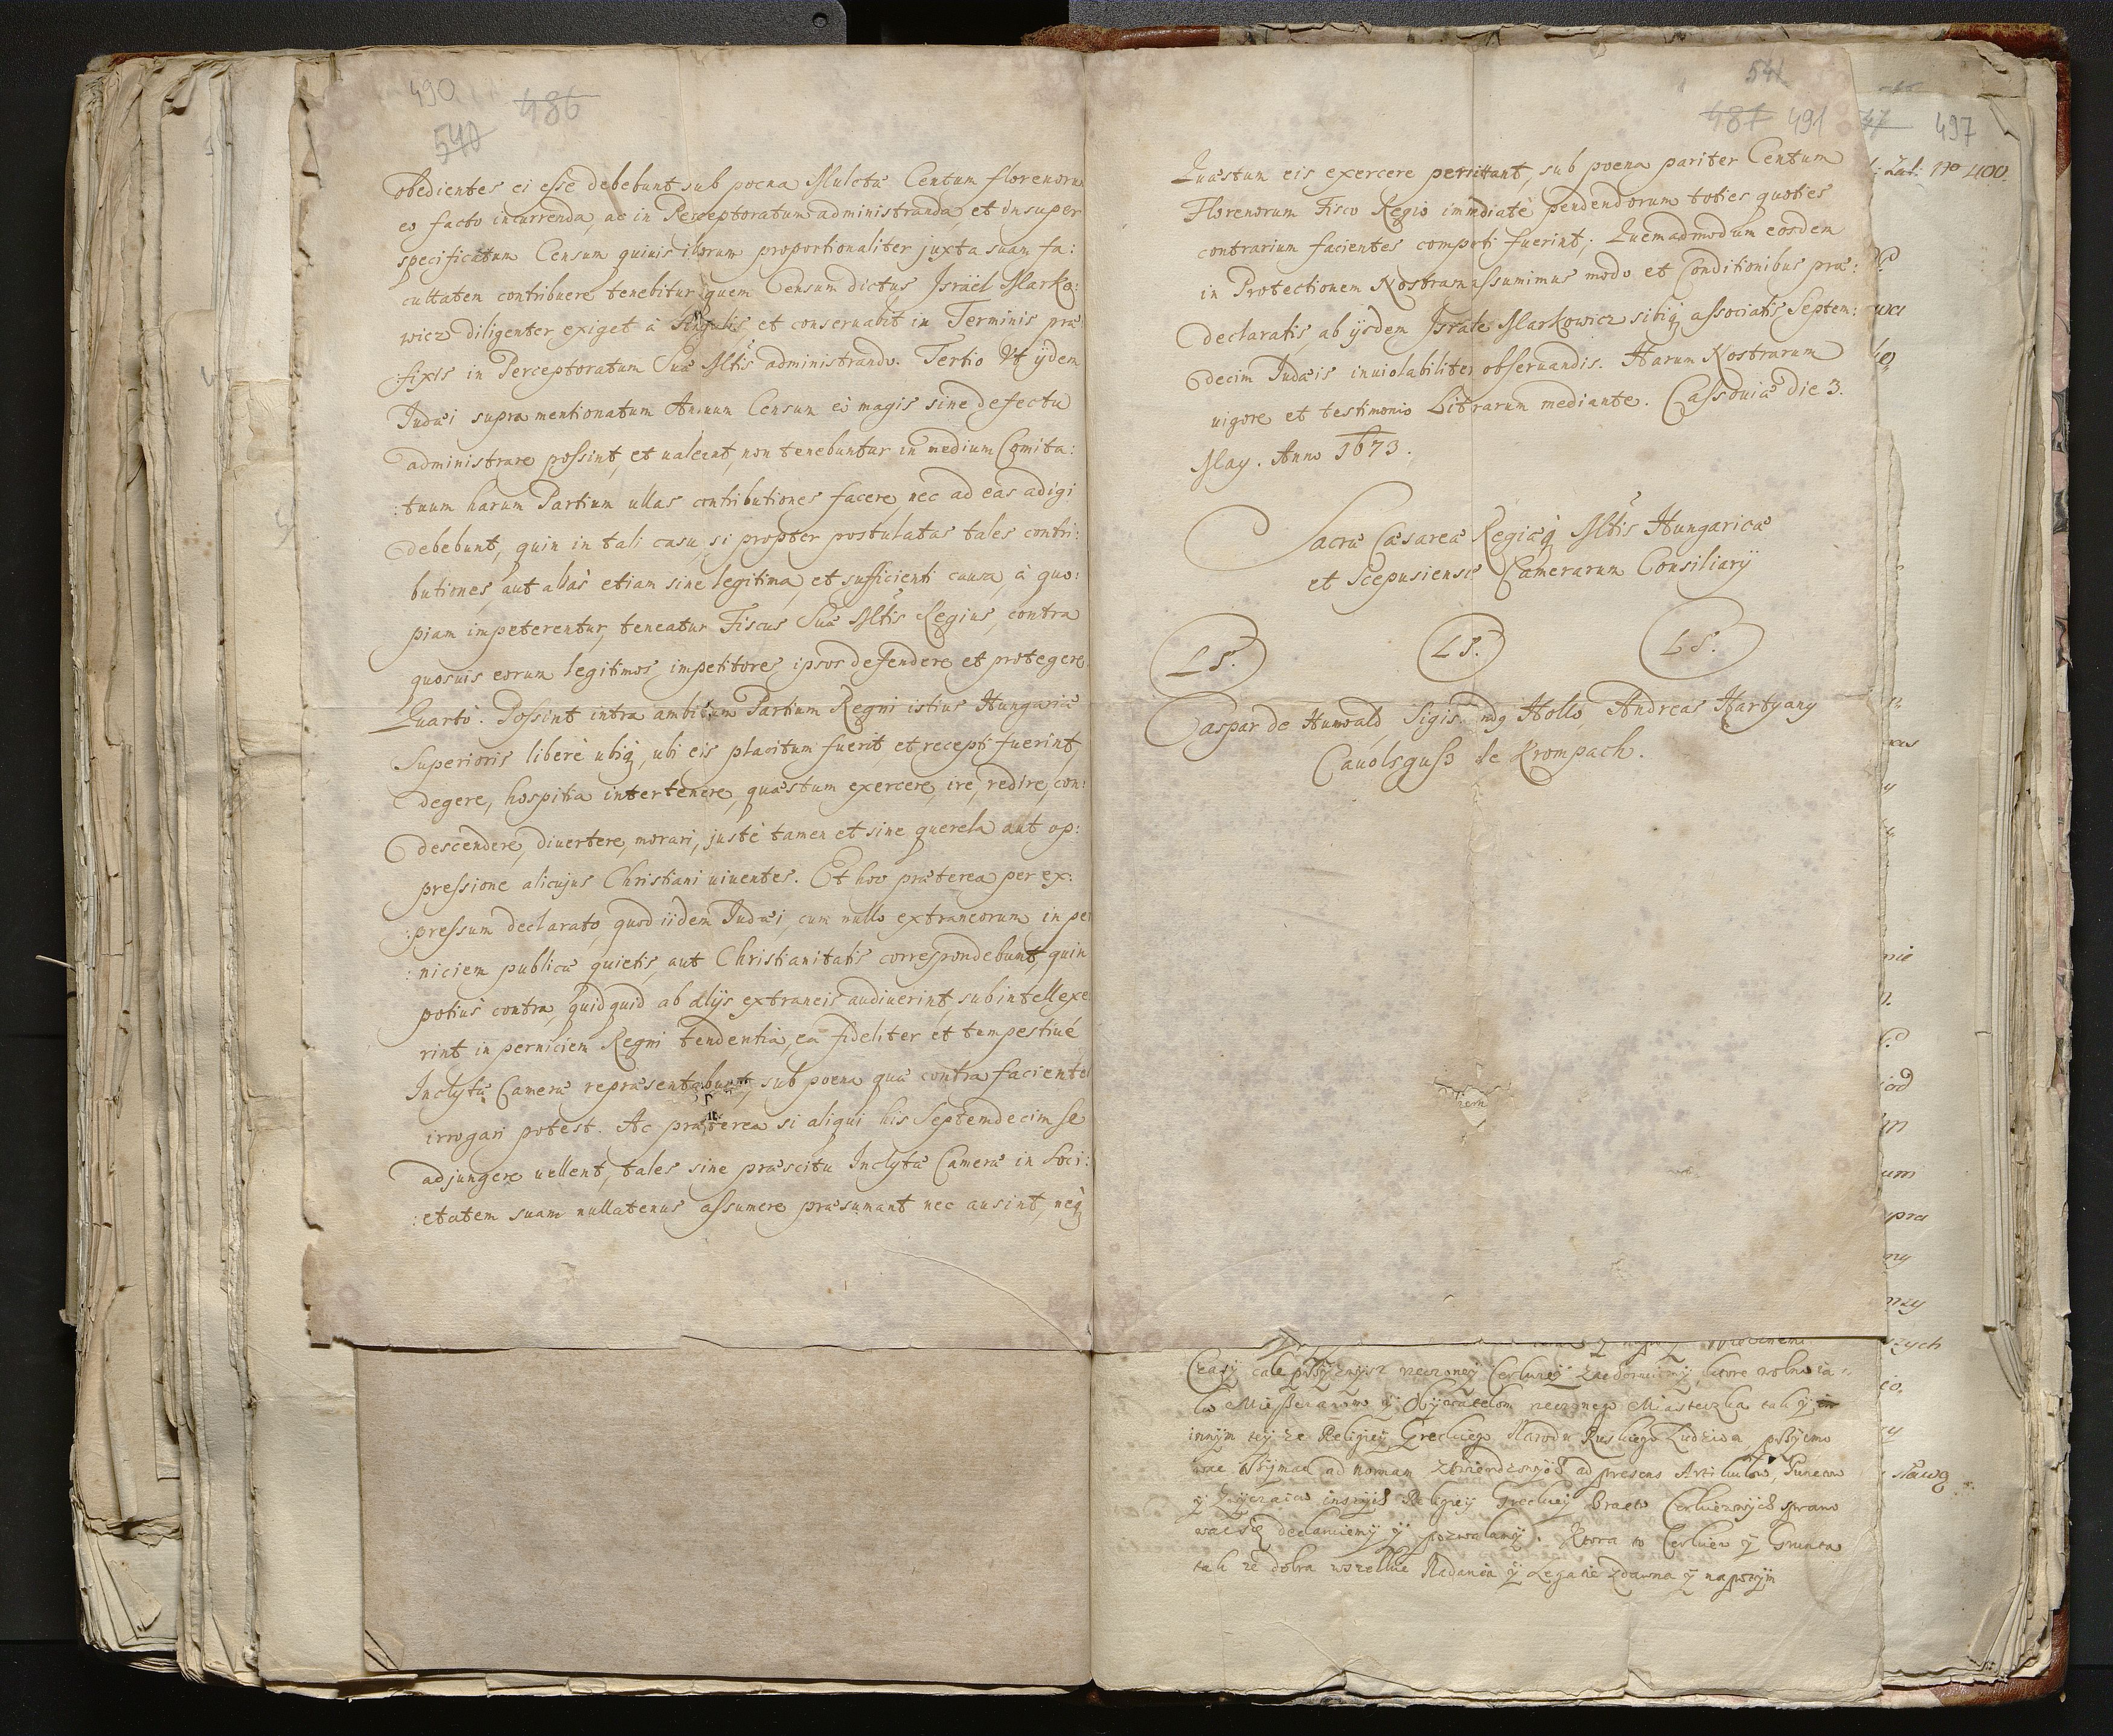 490
486
540
obedientes ei esse debebunt sub poena Mulctæ Centum florenoru
eo facto incurrenda, ac in Perceptoratum administranda, et insuper
specificatum Censum quiuis illorum proportionaliter juxta suam fa:
cultatem contribuere tenebitur, quem Censum dictus Israël Marko:
wicz diligenter exiget à singulis, et conseruabit in Terminis præ
fixis in Perceptoratum Suæ Mltis administrando. Tertio Vt ijdem
Judæi supra mentionatum Annum Censum eò magis sine defectu
administrare possint, et ualeant, non tenebuntur in medium Comita:
:tuum harum Partium ullas contributiones facere, nec ad eas adigi
debebunt, quin in tali casu, si propter postulatas tales contri:
butiones, aut aliàs etiam sine legitima, et sufficienti causa, à quo:
piam impeterentur, teneatur Fiscus Suæ Mltis Regius, contra
quosuis eorum legitimos impetitores ipsos defendere et protegere.
Quartò. Possint intra ambitum Partium Regni istius Hungariæ
Superioris liberè ubiq, ubi eis placitum fuerit, et recepti fuerint,
degere, hospitia intertenere, quæstum exercere, ire, redire, con:
descendere, diuertere, morari, justè tamen et sine querela aut op:
pressione alicujus Christiani uiuentes. Et hoc præterea per ex:
:pressum declarato, quod iidem Judæi, cum nullo extraneorum in per
:niciem publicæ quietis, aut Christianitatis correspondebunt, quin
potiùs contra, quidquid ab alijs extraneis audiuerint, subintellexe
rint in perniciem Regni tendentia, ea fideliter et tempestiuè
Inclytæ Cameræ repræsentabunt, sub poena quæ contra facientes
irrogari potest. Ac præterea si aliqui his Septemdecim se
adjungere uellent, tales sine præscitu Inclytæ Cameræ in Soci:
:etatem suam nullatenus assumere præsumant nec ausint, neq
541
487 491
Quæstum eis exercere permittant, sub poena pariter Centum
Florenorum Fisco Regio immediatè pendendorum toties quoties
contrarium facientes comperti fuerint; Quemadmodum eosdem
in Protectionem Nostram assumimus modo et Conditionibus præ:
declaratis, ab ijsdem Isräle Markowicz sibiq associatis Septem:
decim Judæis inuiolabiliter obseruandis. Harum Nostrarum
uigore et testimonio Litrarum mediante. Cassouiæ die 3.
May. Anno 1673.
Sacræ Cæsareæ Regiæq Mltis Hungaricæ
et Scepusiensis Camerarum Consiliarij
LS. LS. LS.
Caspar de Hunwald Sigis Hollo Andreas Hartyany
de Krompach.
47 497
No 400.
Czasy cale
innym teyze Religiey Greckiego Narodu Ruskiego Ludziom
ad normam ad presens Artikulow
y Zwyczaiow inszych Religiey Greckiey Bractw Cerkiewnych sprawo
wac się deklaruiemy y pozwalamy. Ktora to Cerkiew y Grunta
tak ze dobra wszelkie Nadania y Legacie zdawna y